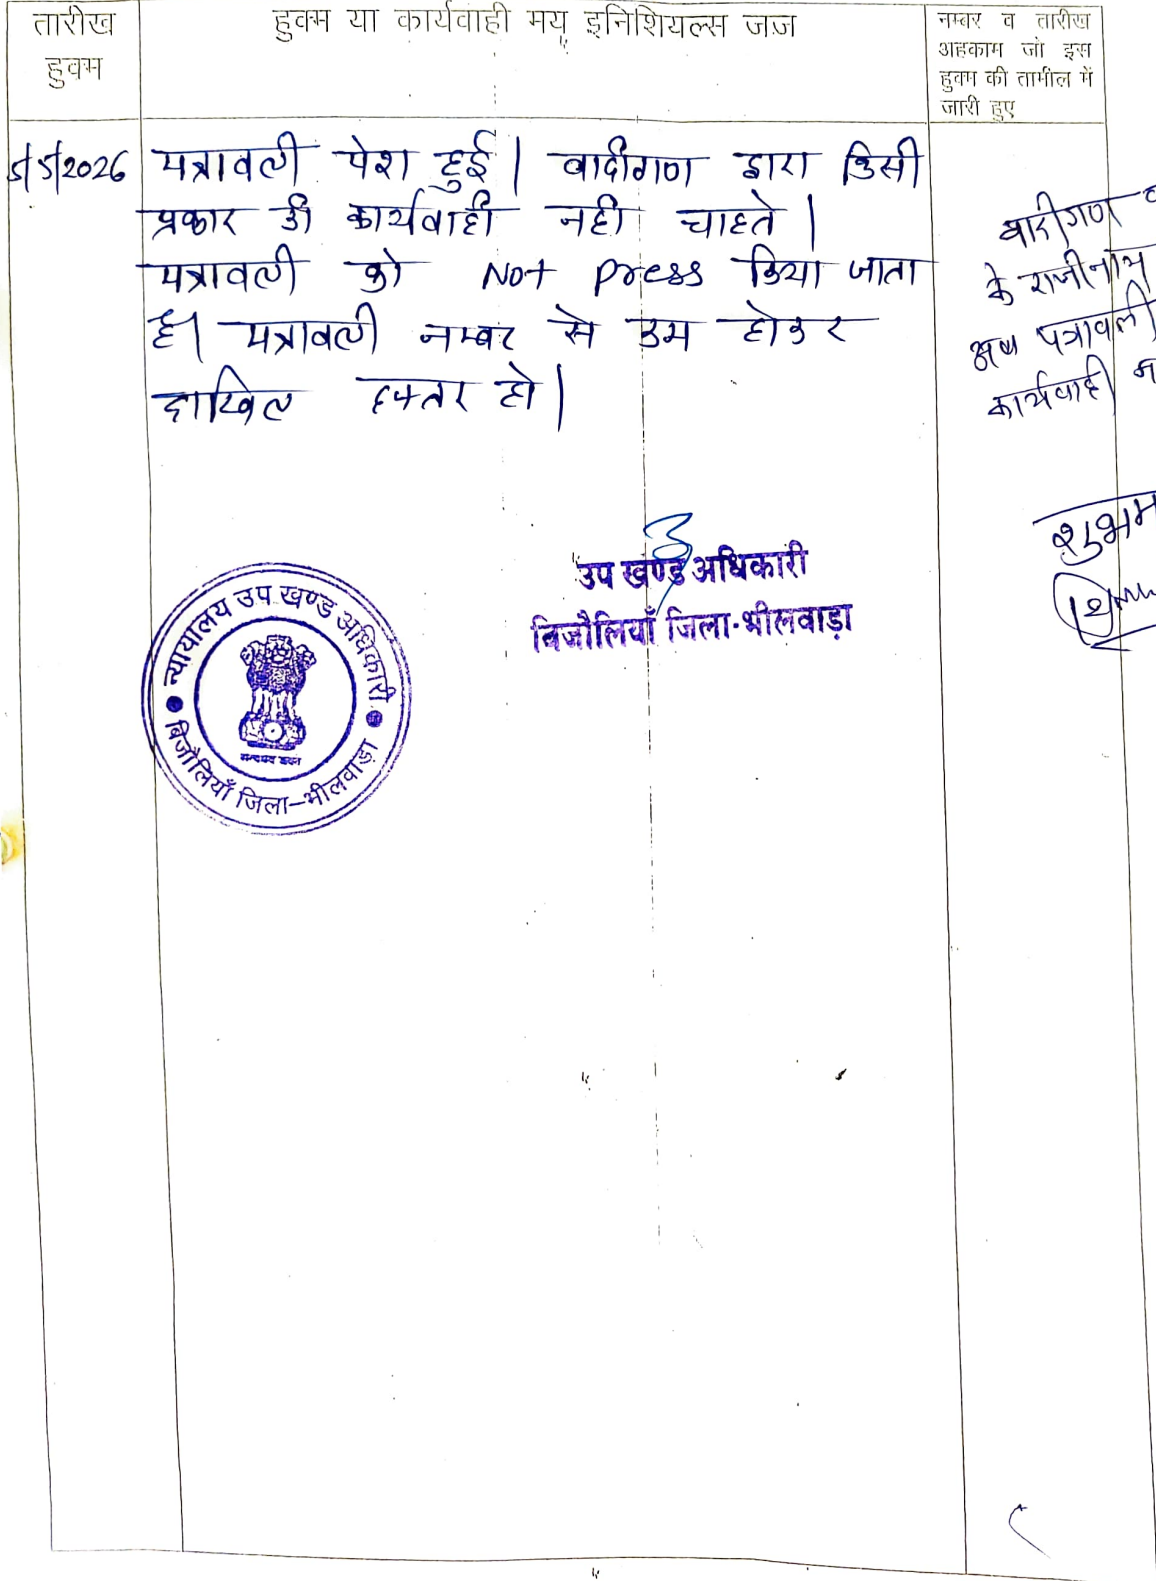 तारीख
हुक्म
हुक्म या कार्यवाही मय इनिशियल्स जज
नम्बर व तारीख
अहकाम जो इस
हुक्म की तामील में
जारी हुए
5/5/2026 पत्रावली पेश हुई | वादीगण द्वारा किसी
प्रकार की कार्यवाही नही चाहते |
पत्रावली को Not press किया जाता
है। पत्रावली नम्बर से कम होकर
दाखिल दफ्तर हो |
वादीगण
के राजीनाम
अब पत्रावली
कार्यवाही
शुभम
उप खण्ड अधिकारी
बिजौलियाँ जिला-भीलवाड़ा
न्यायालय उप खण्ड अधिकारी
बिजौलियाँ जिला-भीलवाड़ा